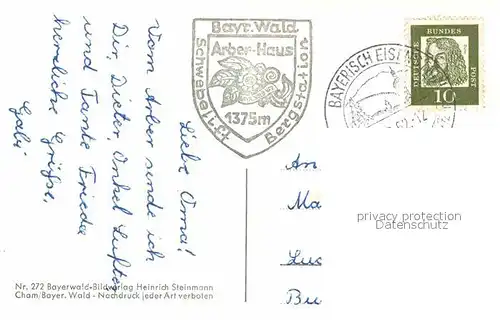 Liebe Oma!
Vom Arber sende ich
Dir, Dieter, Onkel
und Tante Frieda
herzliche Grüße.
Gabi
Bayr. Wald
Arber-Haus
Schwebelift
Bergstation
1375m
BAYERISCH EIS
DEUTSCHE BUNDES POST
10
An
Ma
Lud
Bu
privacy protection
Datenschutz
Nr. 272 Bayerwald-Bildverlag Heinrich Steinmann
Cham/Bayer. Wald - Nachdruck jeder Art verboten